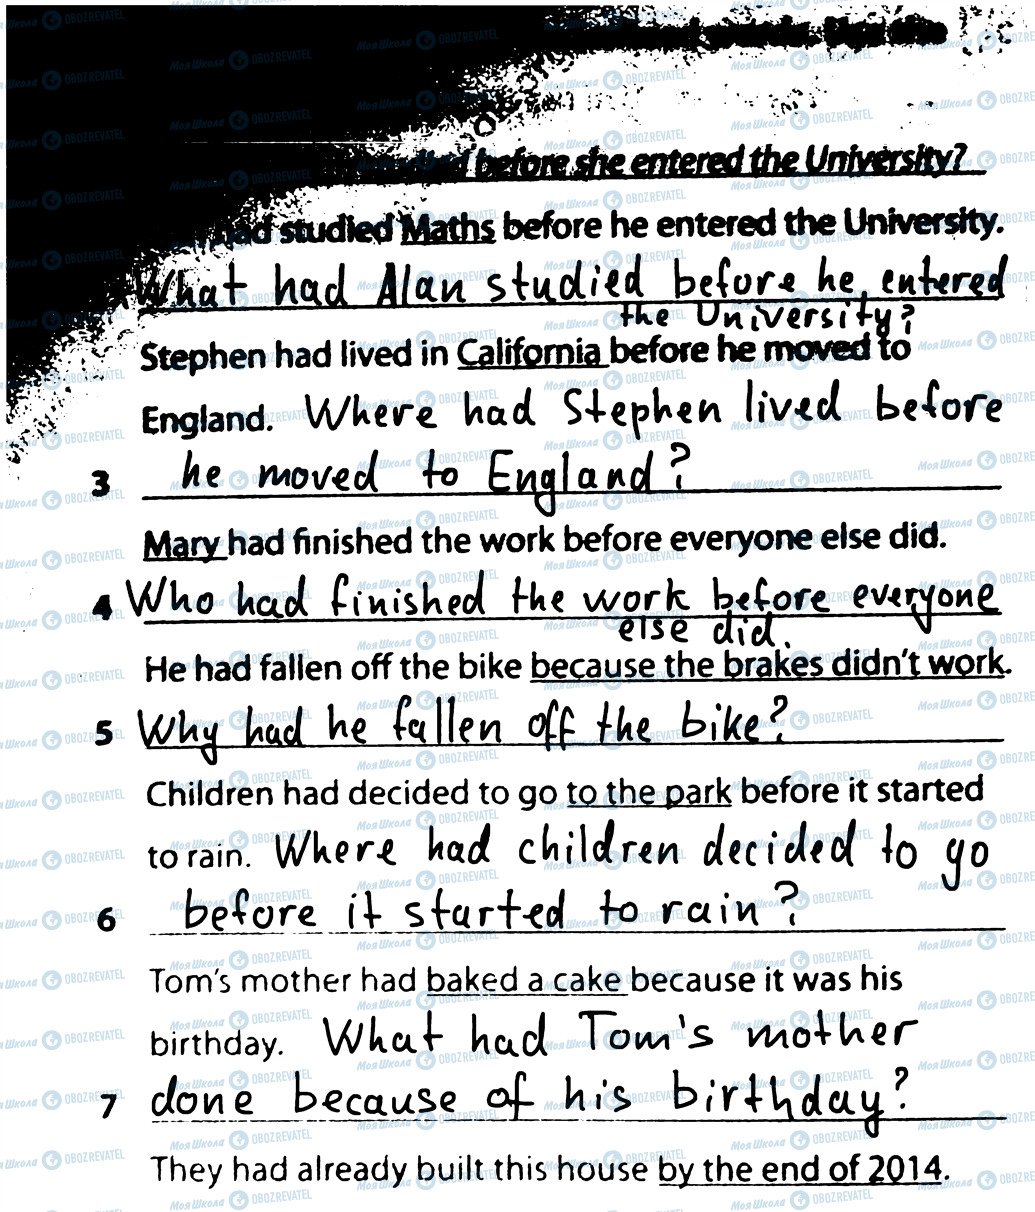 before she entered the University?
had studied Maths before he entered the University.
What had Alan studied before he entered
the University?
Stephen had lived in California before he moved to
England. Where had Stephen lived before
3 he moved to England?
Mary had finished the work before everyone else did.
4 Who had finished the work before everyone
else did.
He had fallen off the bike because the brakes didn't work.
5 Why had he fallen off the bike?
Children had decided to go to the park before it started
to rain. Where had children decided to go
6 before it started to rain?
Tom's mother had baked a cake because it was his
birthday. What had Tom's mother
7 done because of his birthday?
They had already built this house by the end of 2014.